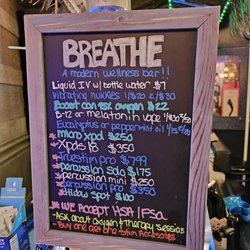 BREATHE
A modern wellness bar!!
Liquid IV w/ bottle water $7
Vibrating nukkies 1/$20 2/$30
Boost can 95% oxygen $22
B-12 or melatonin vape
Eucalyptus or peppermint oil
Micro xpd $250
Xpds 18 $350
Truestim pro $799
percussion solo $175
percussion mini $250
percussion pro $350
Hidow spot $100
WE ACCEPT HSA/FSA
ASK ABOUT oxygen & therapy sessions
Buy one get one